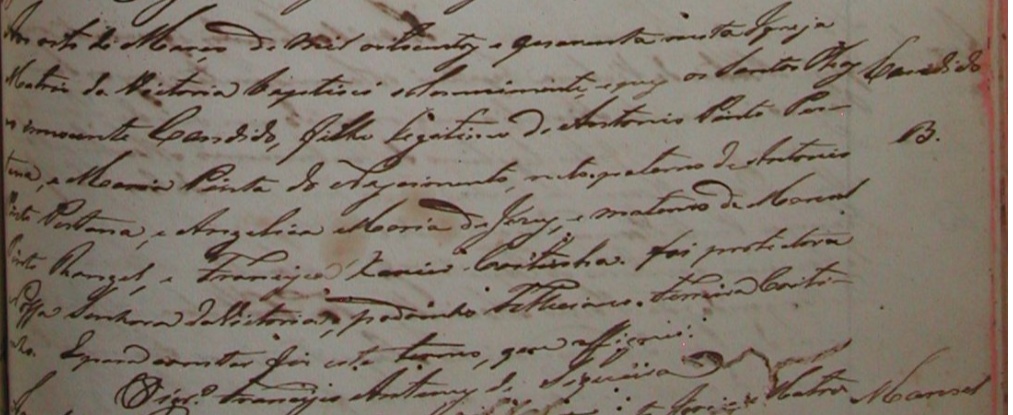 Aos oito de Março de mil oitocentos e quarenta nesta Igreja
Matriz da Victoria baptisei solemnimente e puz os Santos Oleos Candido
o innocente Candido, filho legitimo de Antonio Pinto Pes- B.
tana, e Maria Pinta do Nascimento, neto paterno de Antonio
Pinto Pestana, e Angelica Maria de Jesus, e materno de Manoel
Pinto Rangel, e Francisca Xavier Coitinha. foi protectora
Nossa Senhora da Victoria, padrinho Ferreira Coiti-
nho. E para constar fiz este termo, que assignei.
O Vigr.º Francisco Antunes de Siqueira
Matriz Manoel